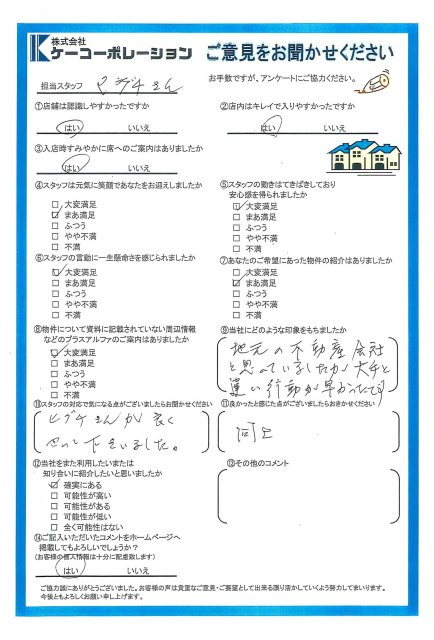 株式会社
ケーコーポレーション
ご意見をお聞かせください
担当スタッフ ヒグチさん
お手数ですが、アンケートにご協力ください。
①店舗は認識しやすかったですか
はい いいえ
②店内はキレイで入りやすかったですか
はい いいえ
③入店時すみやかに席へのご案内はありましたか
はい いいえ
④スタッフは元気に笑顔であなたをお迎えしましたか
□ 大変満足
☑ まあ満足
□ ふつう
□ やや不満
□ 不満
⑤スタッフの動きはてきぱきしており
安心感を得られましたか
☑ 大変満足
□ まあ満足
□ ふつう
□ やや不満
□ 不満
⑥スタッフの言動に一生懸命さを感じられましたか
☑ 大変満足
□ まあ満足
□ ふつう
□ やや不満
□ 不満
⑦あなたのご希望にあった物件の紹介はありましたか
□ 大変満足
☑ まあ満足
□ ふつう
□ やや不満
□ 不満
⑧物件について資料に記載されていない周辺情報
などのプラスアルファのご案内はありましたか
☑ 大変満足
□ まあ満足
□ ふつう
□ やや不満
□ 不満
⑨当社にどのような印象をもちましたか
地元の不動産会社
と思っていましたが大手と
違い行動が早かったです
⑩スタッフの対応で気になる点がございましたらお聞かせください
ヒグチさんが良く
やって下さいました。
⑪良かったと感じた点がございましたらおきかせください
同上
⑫当社をまた利用したいまたは
知り合いに紹介したいと思いましたか
☑ 確実にある
□ 可能性が高い
□ 可能性がある
□ 可能性が低い
□ 全く可能性はない
⑬その他のコメント
⑭ご記入いただいたコメントをホームページへ
掲載してもよろしいでしょうか？
（お客様の個人情報は十分に配慮致します）
はい いいえ
ご協力誠にありがとうございました。お客様の声は貴重なご意見・ご要望として出来る限り活かしていくよう努力してまいります。
今後ともよろしくお願い申し上げます。